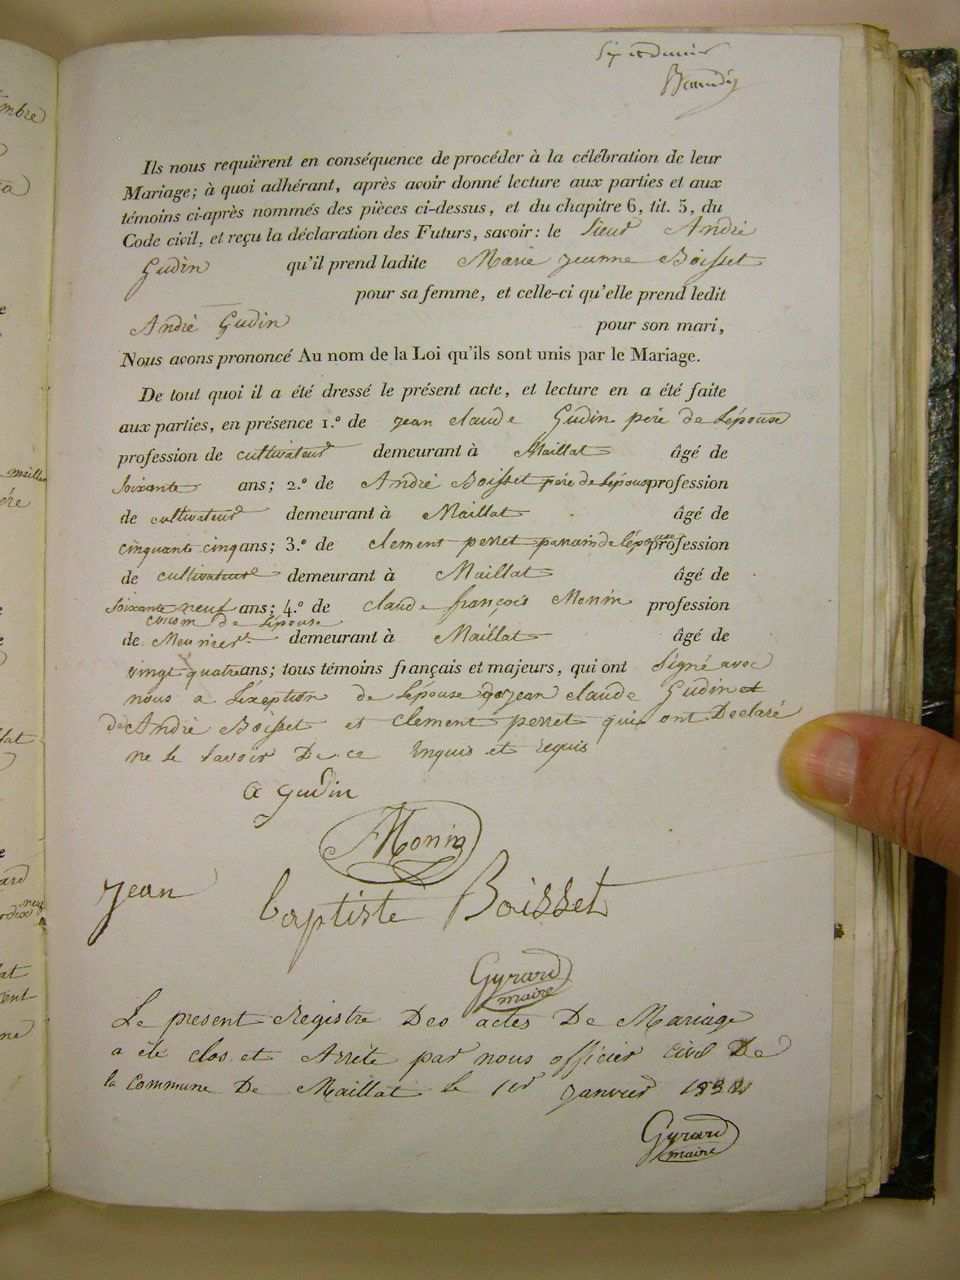 Six et dernier
Ils nous requièrent en conséquence de procéder à la célébration de leur
Mariage; à quoi adhérant, après avoir donné lecture aux parties et aux
témoins ci-après nommés des pièces ci-dessus, et du chapitre 6, tit. 5, du
Code civil, et reçu la déclaration des Futurs, savoir: le sieur André
Gudin qu'il prend ladite Marie jeanne Boisset
pour sa femme, et celle-ci qu'elle prend ledit
André Gudin pour son mari,
Nous avons prononcé Au nom de la Loi qu'ils sont unis par le Mariage.
De tout quoi il a été dressé le présent acte, et lecture en a été faite
aux parties, en présence 1.º de jean claude Gudin père de Lépouse
profession de cultivateur demeurant à Maillat âgé de
soixante ans; 2.º de André Boisset père de Lépouse profession
de cultivateur demeurant à Maillat âgé de
cinquante cinq ans; 3.º de clement perret parain de lépouse profession
de cultivateur demeurant à Maillat âgé de
soixante neuf ans; 4.º de claude françois Monin profession
cousin de Lépouse
de Meunier demeurant à Maillat âgé de
vingt quatre ans; tous témoins français et majeurs, qui ont signé avec
nous a Léxeption de Lépouse de jean claude Gudin et
de André Boisset et clement perret qui ont Declaré
ne le savoir De ce Enquis et requis
a gudin
Monin
jean baptiste Boisset
Gyrard
maire
Le present Régistre Des actes De Mariage
a été clos et Arrêté par nous officier civil De
la commune De Maillat le 1er janvier
Gyrard
maire